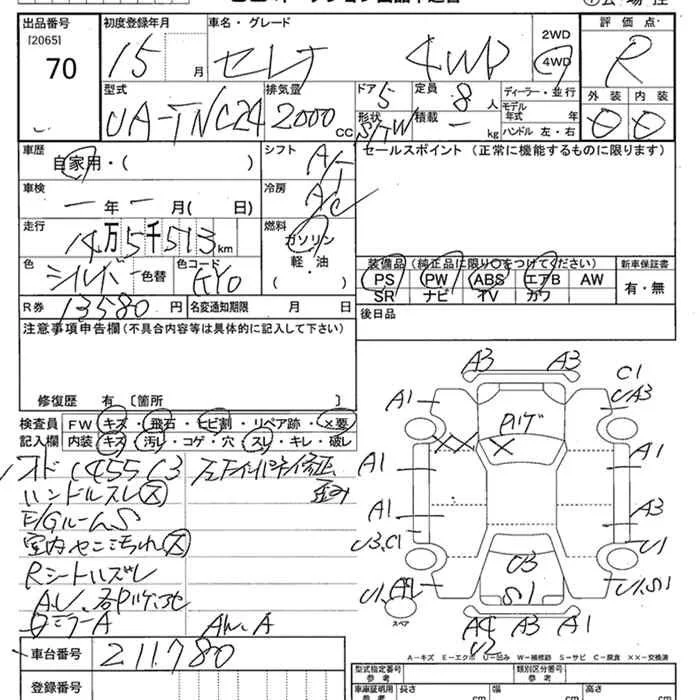 出品番号 初度登録年月 車名・グレード 2WD 4WD 評価点
[2065]
70 15 月 セレナ 4WD R
型式 排気量 ドア 5 定員 8人 ディーラー・並行 外装 内装
UA-TNC24 2000 CC 形状 S/TW 積載 ー kg モデル年式 年 ハンドル 左・右
車歴 シフト セールスポイント (正常に機能するものに限ります)
自家用・( ) A/-
車検 冷房
ー 年 ー 月( 日) A/C
走行 燃料
14万5千513km ガソリン
色 色コード 軽・油 装備品(純正品に限り○をつけてください) 新車保証書
シルバー 色替 KY0 ( ) PS PW ABS エアB AW 有・無
SR ナビ TV カワ
R券 13580 円 名変通知期限 月 日 後日品
注意事項申告欄(不具合内容等は具体的に記入して下さい)
修復歴 有 〔箇所 〕
検査員 FW キズ・飛石・ヒビ割・リペア跡・×要
記入欄 内装 キズ・汚れ・コゲ・穴・スレ・キレ・破レ
A3 A3
C1
A1 UA3
ハンドルスレ
E/GルームS
A1 A1
A1 A3
U3,C1 U1
Rシートルズレ
U3
S1
U1,S1
スペア
A4 A3 A1
U2
AW、A
車台番号 211780
登録番号
A-キズ E-エクボ U-凹み W-補修跡 S-サビ C-腐食 ××-交換済
型式指定番号 参考 類別区分番号 参考
車庫証明用 参考 長さ cm 幅 cm 高さ cm